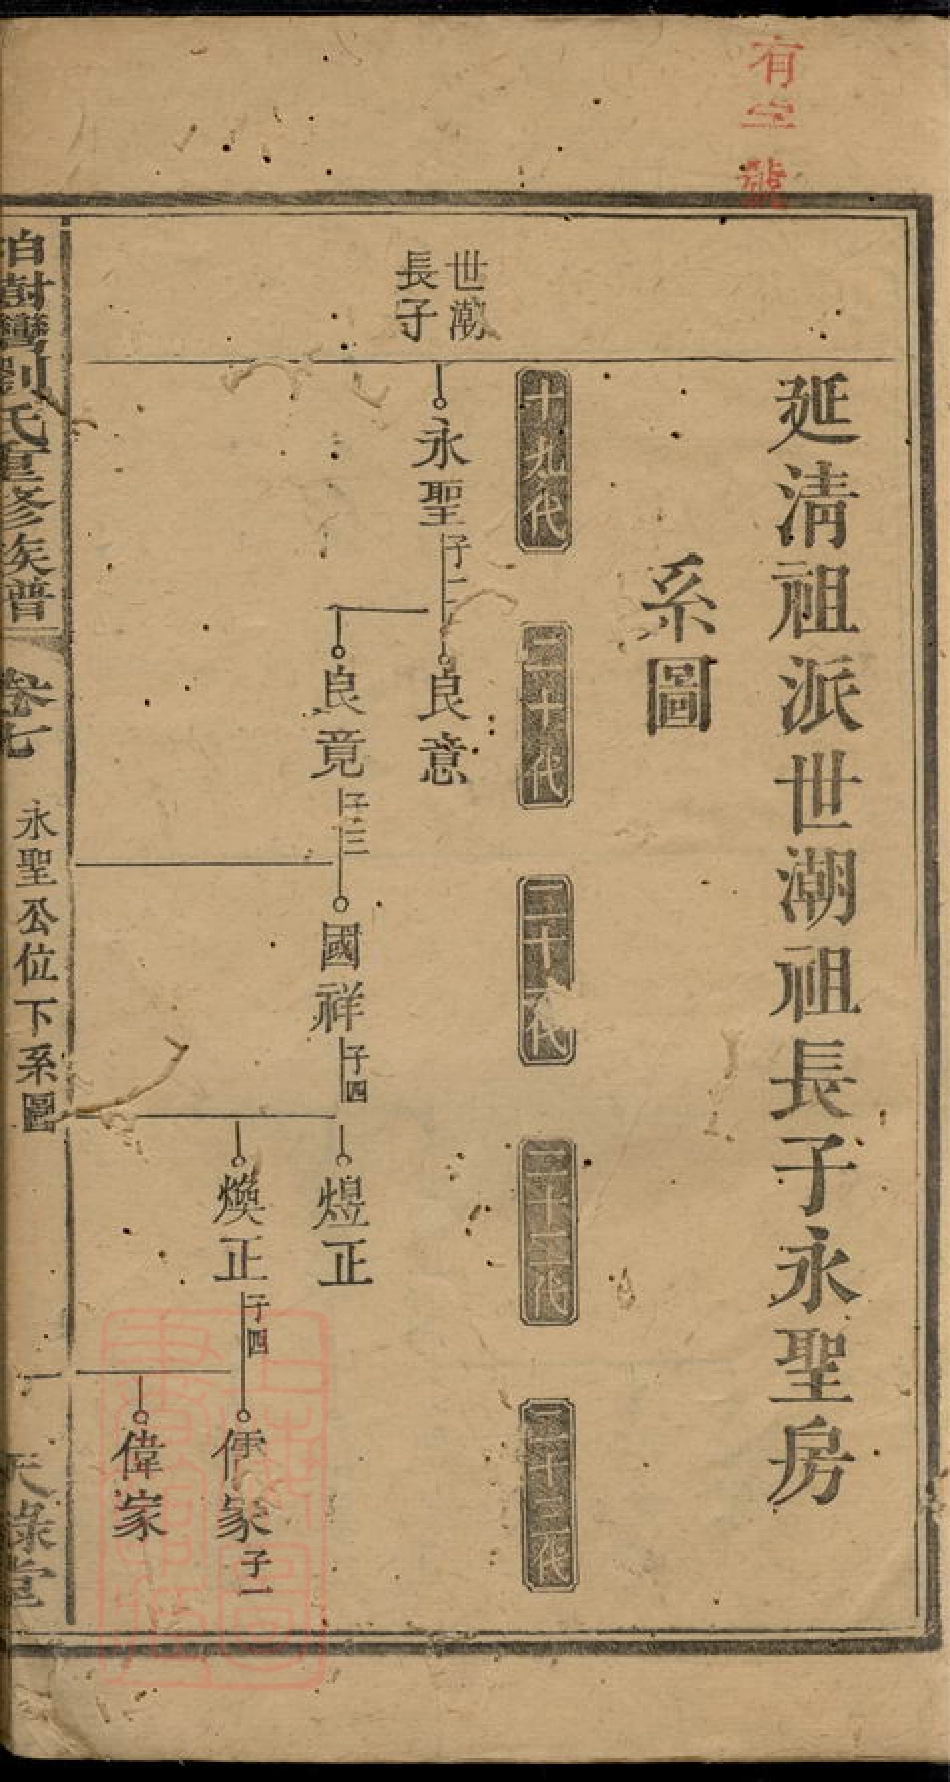 有字號
延清祖派世潮祖長子永聖房
系圖
十九代
二十代
二十一代
二十二代
二十三代
世潮
長子
永聖
子二
良意
良竟
子三
國祥
子四
煜正
煥正
子四
儒家
子一
偉家
柏樹灣劉氏重修族譜
卷七
永聖公位下系圖
一
天祿堂